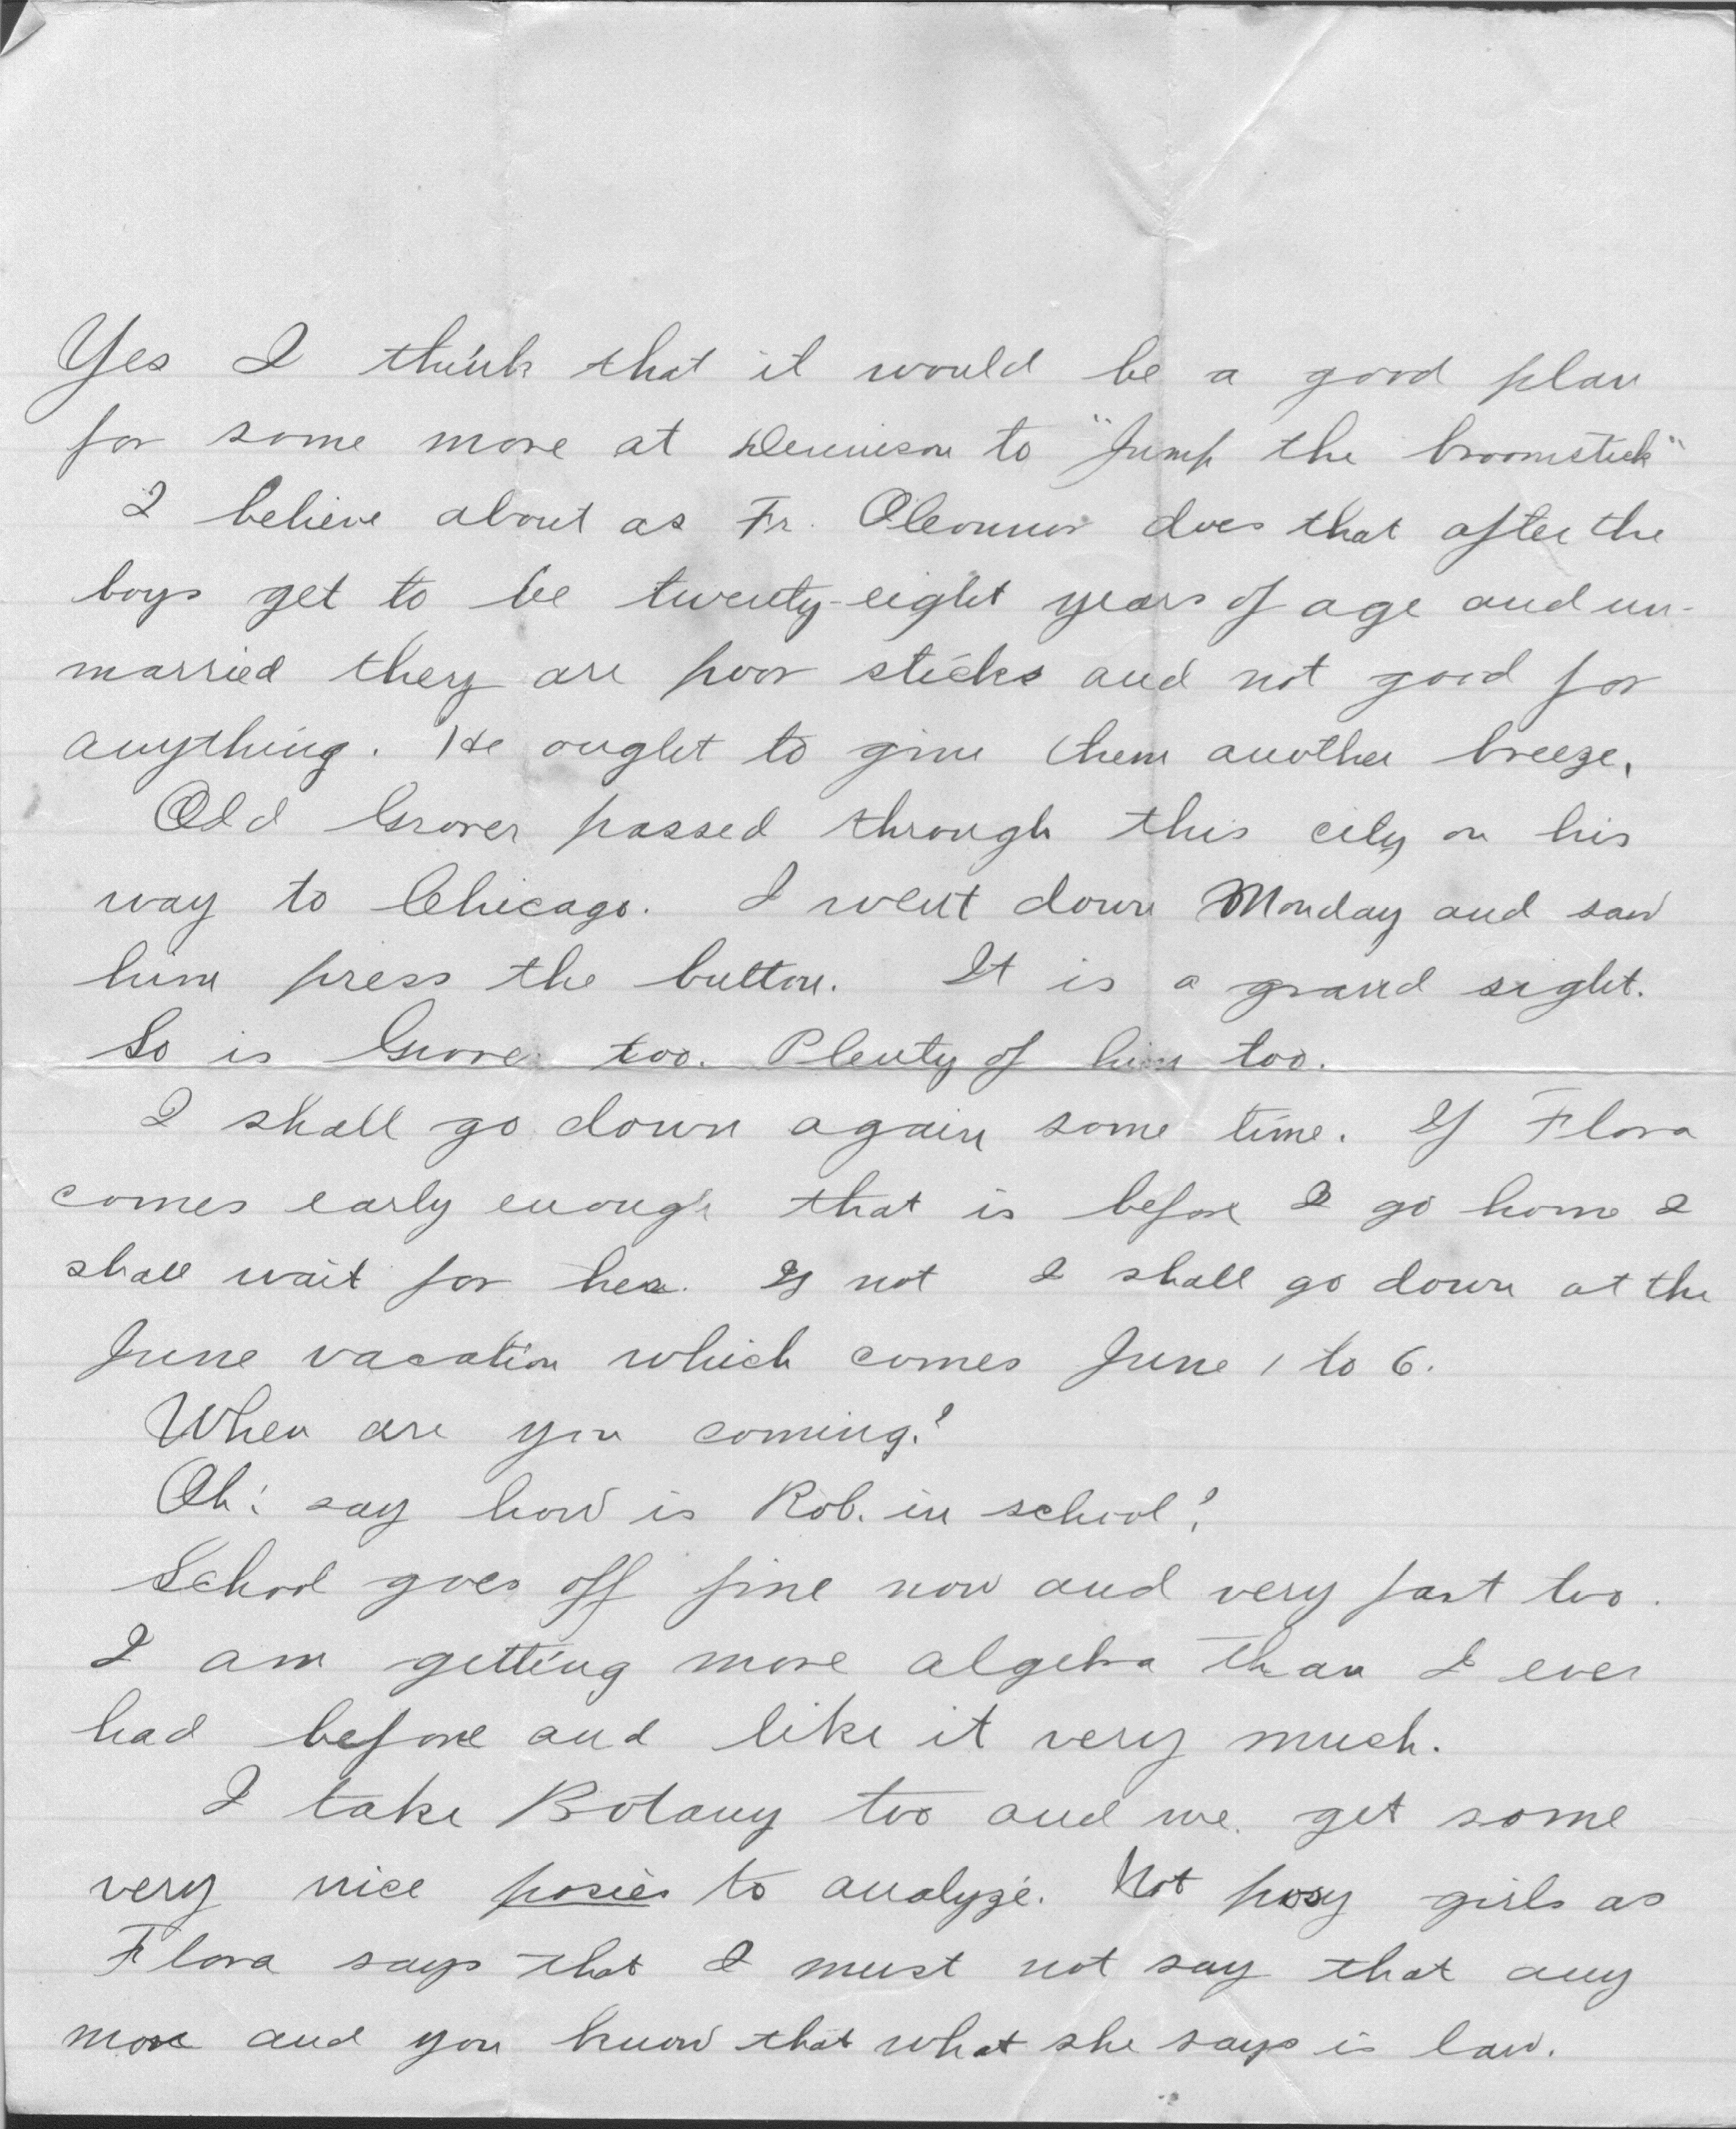 Yes I think that it would be a good plan
for some more at Dennison to "Jump the broomstick"
I believe about as Fr. Oleonnor does that after the
boys get to be twenty-eight years of age and un-
married they are poor sticks and not good for
anything. He ought to give them another breeze.
Old Grover passed through this city on his
way to Chicago. I went down Monday and saw
him press the button. It is a grand sight.
So is Grover too. Plenty of him too.
I shall go down again some time. If Flora
comes early enough that is before I go home I
shall wait for her. If not I shall go down at the
June vacation which comes June 1 to 6.
When are you coming?
Oh! say how is Rob. in school?
School goes off fine now and very fast too.
I am getting more algebra than I ever
had before and like it very much.
I take Botany too and we get some
very nice posies to analyze. Not posy girls as
Flora says that I must not say that any
more and you know that what she says is law.